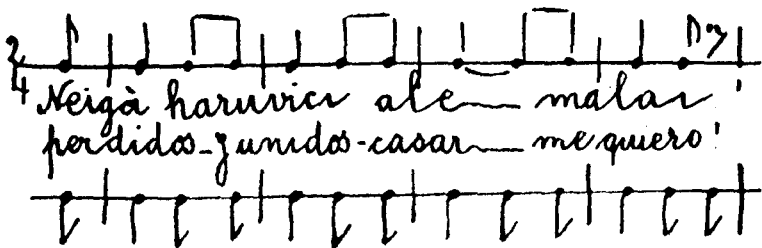 2
4
Neigà haruvici ale__ malai!
perdidos_y unidos-casar__ me quiero!